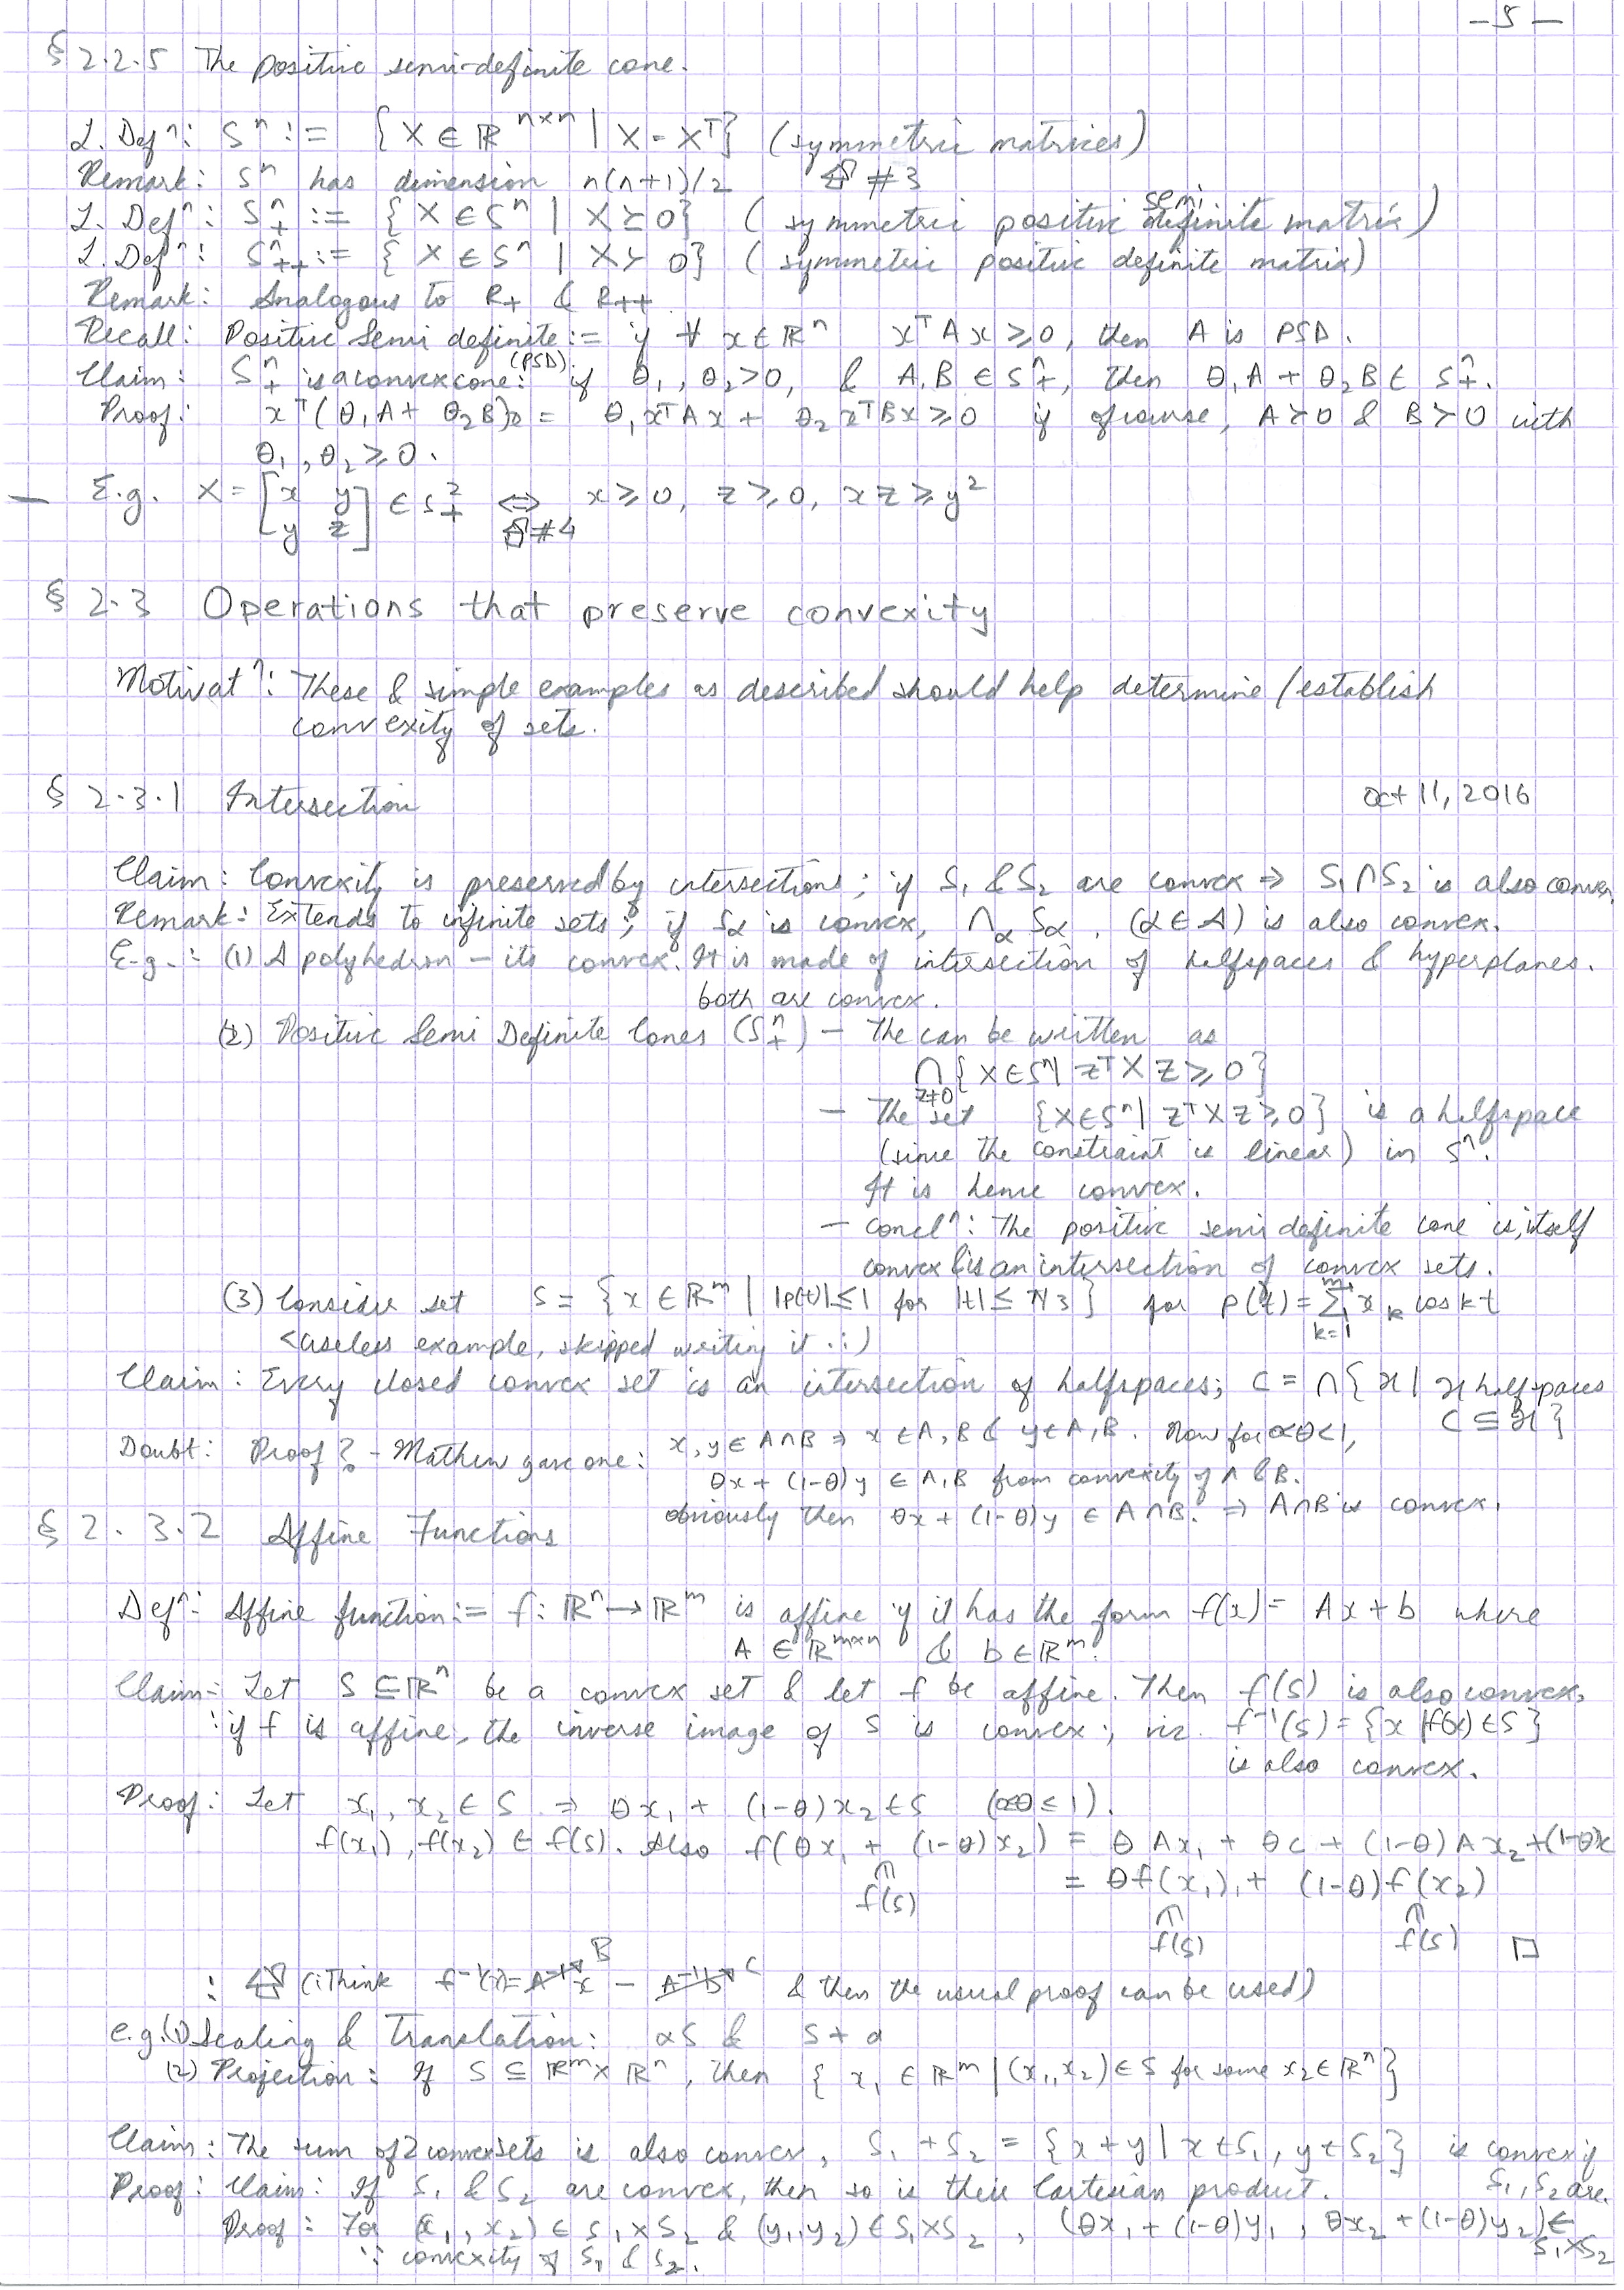 – 5 –
§ 2.2.5 The positive semi-definite cone.
L. Defⁿ: Sⁿ := { X ∈ ℝⁿˣⁿ | X = Xᵀ } (symmetric matrices)
Remark: Sⁿ has dimension n(n+1)/2 #3
L. Defⁿ: Sⁿ₊ := { X ∈ Sⁿ | X ⪰ 0 } (symmetric positive semi definite matrix)
L. Defⁿ: Sⁿ₊₊ := { X ∈ Sⁿ | X ≻ 0 } (symmetric positive definite matrix)
Remark: Analogous to R₊ & R₊₊
Recall: Positive Semi definite (PSD) := if ∀ x ∈ ℝⁿ xᵀAx ⩾ 0, then A is PSD.
Claim: Sⁿ₊ is a convex cone: if θ₁, θ₂ > 0, & A, B ∈ Sⁿ₊, then θ₁A + θ₂B ∈ Sⁿ₊.
Proof: xᵀ(θ₁A + θ₂B)x = θ₁xᵀAx + θ₂xᵀBx ⩾ 0 if ofcourse, A ≻ 0 & B ≻ 0 with
θ₁, θ₂ ⩾ 0.
– E.g. X = [x y; y z] ∈ S²₊ ⇔ x ⩾ 0, z ⩾ 0, xz ⩾ y²
#4
§ 2.3 Operations that preserve convexity
Motivatⁿ: These & simple examples as described should help determine / establish
convexity of sets.
§ 2.3.1 Intersection Oct 11, 2016
Claim: Convexity is preserved by intersections; if S₁ & S₂ are convex ⇒ S₁∩S₂ is also convex
Remark: Extends to infinite sets; if Sα is convex, ∩α Sα, (α ∈ A) is also convex.
E.g.: (1) A polyhedron – its convex. It is made of intersection of halfspaces & hyperplanes.
both are convex.
(2) Positive Semi Definite Cones (Sⁿ₊) – The can be written as
∩_{z≠0} { X ∈ Sⁿ | zᵀXz ⩾ 0 }
– The set { X ∈ Sⁿ | zᵀXz ⩾ 0 } is a halfspace
(since the constraint is linear) in Sⁿ.
It is hence convex.
– Conclⁿ: The positive semi definite cone is, itself
convex & is an intersection of convex sets.
(3) Consider set S = { x ∈ ℝᵐ | |p(t)| ≤ 1 for |t| ≤ π/3 } for p(t) = Σ_{k=1}^{m} x_k cos kt
<useless example, skipped writing it :)
Claim: Every closed convex set is an intersection of halfspaces; C = ∩{ ℋ | ℋ halfspaces
C ⊆ ℋ }
Doubt: Proof? – Mathew gave one: x, y ∈ A∩B ⇒ x ∈ A, B & y ∈ A, B. Now for 0<θ<1,
θx + (1-θ)y ∈ A, B from convexity of A & B.
obviously then θx + (1-θ)y ∈ A∩B. ⇒ A∩B is convex.
§ 2.3.2 Affine Functions
Defⁿ: Affine function := f: ℝⁿ → ℝᵐ is affine if it has the form f(x) = Ax + b where
A ∈ ℝᵐˣⁿ & b ∈ ℝᵐ.
Claim: Let S ⊆ ℝⁿ be a convex set & let f be affine. Then f(S) is also convex.
: if f is affine, the inverse image of S is convex; viz. f⁻¹(S) = { x | f(x) ∈ S }
is also convex.
Proof: Let x₁, x₂ ∈ S ⇒ θx₁ + (1-θ)x₂ ∈ S (0≤θ≤1).
f(x₁), f(x₂) ∈ f(S). Also f(θx₁ + (1-θ)x₂) = θAx₁ + θc + (1-θ)Ax₂ + (1-θ)c
= θf(x₁) + (1-θ)f(x₂)
f(S) f(S) f(S) □
: (i Think f⁻¹(x) = A⁻¹x B – A⁻¹b C & then the usual proof can be used)
e.g. (1) Scaling & Translation: αS & S + a
(2) Projection: If S ⊆ ℝᵐ × ℝⁿ, then { x₁ ∈ ℝᵐ | (x₁, x₂) ∈ S for some x₂ ∈ ℝⁿ }
Claim: The sum of 2 convex sets is also convex, S₁ + S₂ = { x + y | x ∈ S₁, y ∈ S₂ } is convex if
S₁, S₂ are.
Proof: Claim: If S₁ & S₂ are convex, then so is their Cartesian product.
Proof: For (x₁, x₂) ∈ S₁×S₂ & (y₁, y₂) ∈ S₁×S₂, (θx₁ + (1-θ)y₁, θx₂ + (1-θ)y₂) ∈
S₁×S₂
∵ convexity of S₁ & S₂.